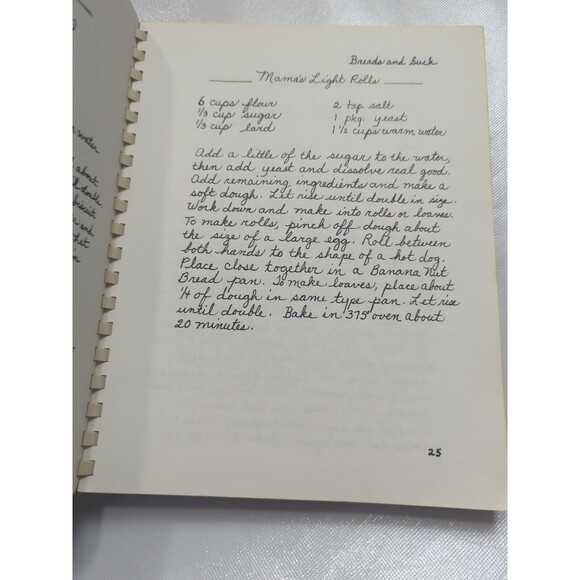 Breads and Such
Mama's Light Rolls
6 cups flour
1/3 cup sugar
1/3 cup lard
2 tsp salt
1 pkg. yeast
1 1/2 cups warm water
Add a little of the sugar to the water,
then add yeast and dissolve real good.
Add remaining ingredients and make a
soft dough. Let rise until double in size.
Work down and make into rolls or loaves.
To make rolls, pinch off dough about
the size of a large egg. Roll between
both hands to the shape of a hot dog.
Place close together in a Banana Nut
Bread pan. To make loaves, place about
1/4 of dough in same type pan. Let rise
until double. Bake in 375° oven about
20 minutes.
25